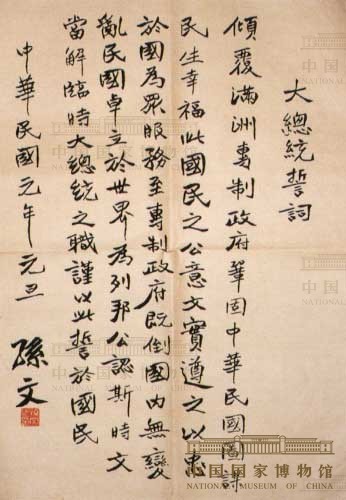 大總統誓詞
傾覆滿洲專制政府鞏固中華民國圖謀
民生幸福此國民之公意文實遵之以忠
於國為眾服務至專制政府既倒國內無變
亂民國卓立於世界為列邦公認斯時文
當解臨時大總統之職謹以此誓於國民
中華民國元年元旦
孫文
中国国家博物馆
NATIONAL MUSEUM OF CHINA